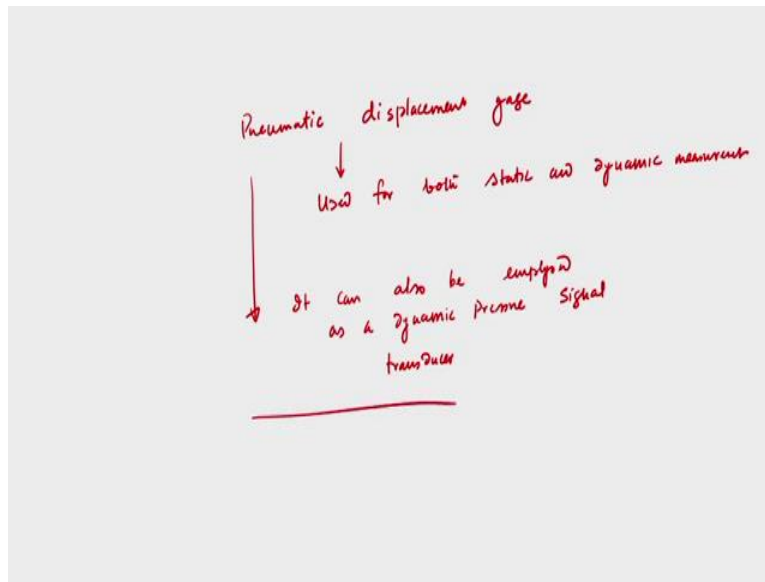 Pneumatic displacement gage
Used for both static and dynamic measurement
It can also be employed
as a dynamic pressure signal
transducer